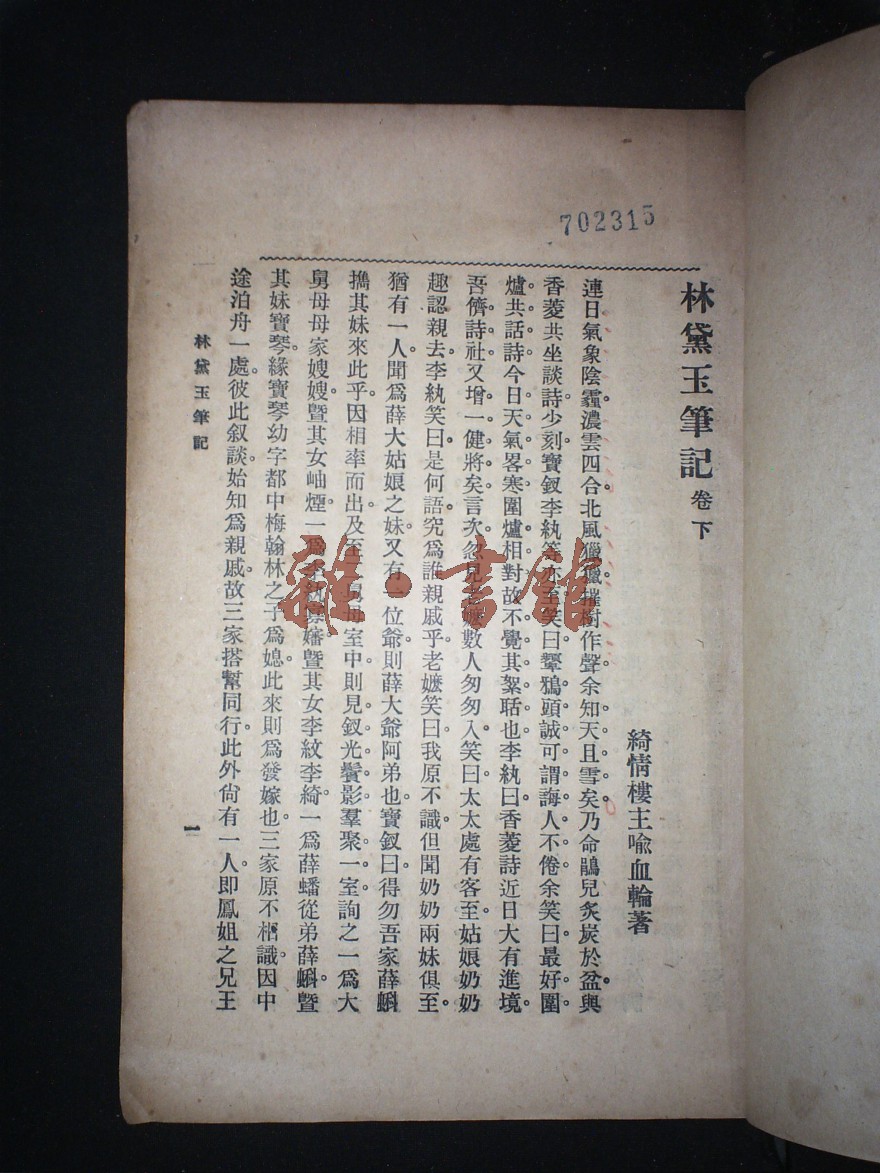 702315
林黛玉筆記 卷下
綺情樓主喩血輪著
連日氣象陰霾濃雲四合。北風獵獵摧樹作聲。余知天且雪矣。乃命鵑兒炙炭於盆。與
香菱共坐談詩。少刻。寶釵李紈等亦至。笑曰。顰鴉頭誠可謂誨人不倦。余笑曰。最好圍
爐共話詩。今日天氣畧寒。圍爐相對。故不覺其絮聒也。李紈曰。香菱詩近日大有進境。
吾儕詩社又增一健將矣。言次。忽見老嬤數人匆匆入。笑曰。太太處有客至。姑娘奶奶
趣認親去。李紈笑曰。是何語。究爲誰親戚乎。老嬤笑曰。我原不識。但聞奶奶兩妹俱至。
猶有一人。聞爲薛大姑娘之妹。又有一位爺。則薛大爺阿弟也。寶釵曰。得勿吾家薛蝌
攜其妹來此乎。因相率而出。及至 母室中。則見釵光鬢影。羣聚一室。詢之。一爲大
舅母母家嫂嫂暨其女岫煙。一爲李紈寡嬸暨其女李紋李綺。一爲薛蟠從弟薛蝌。暨
其妹寶琴。緣寶琴幼字都中梅翰林之子爲媳。此來則爲發嫁也。三家原不相識。因中
途泊舟一處。彼此叙談。始知爲親戚。故三家搭幫同行。此外尙有一人。卽鳳姐之兄王
林黛玉筆記
一
雜·書館